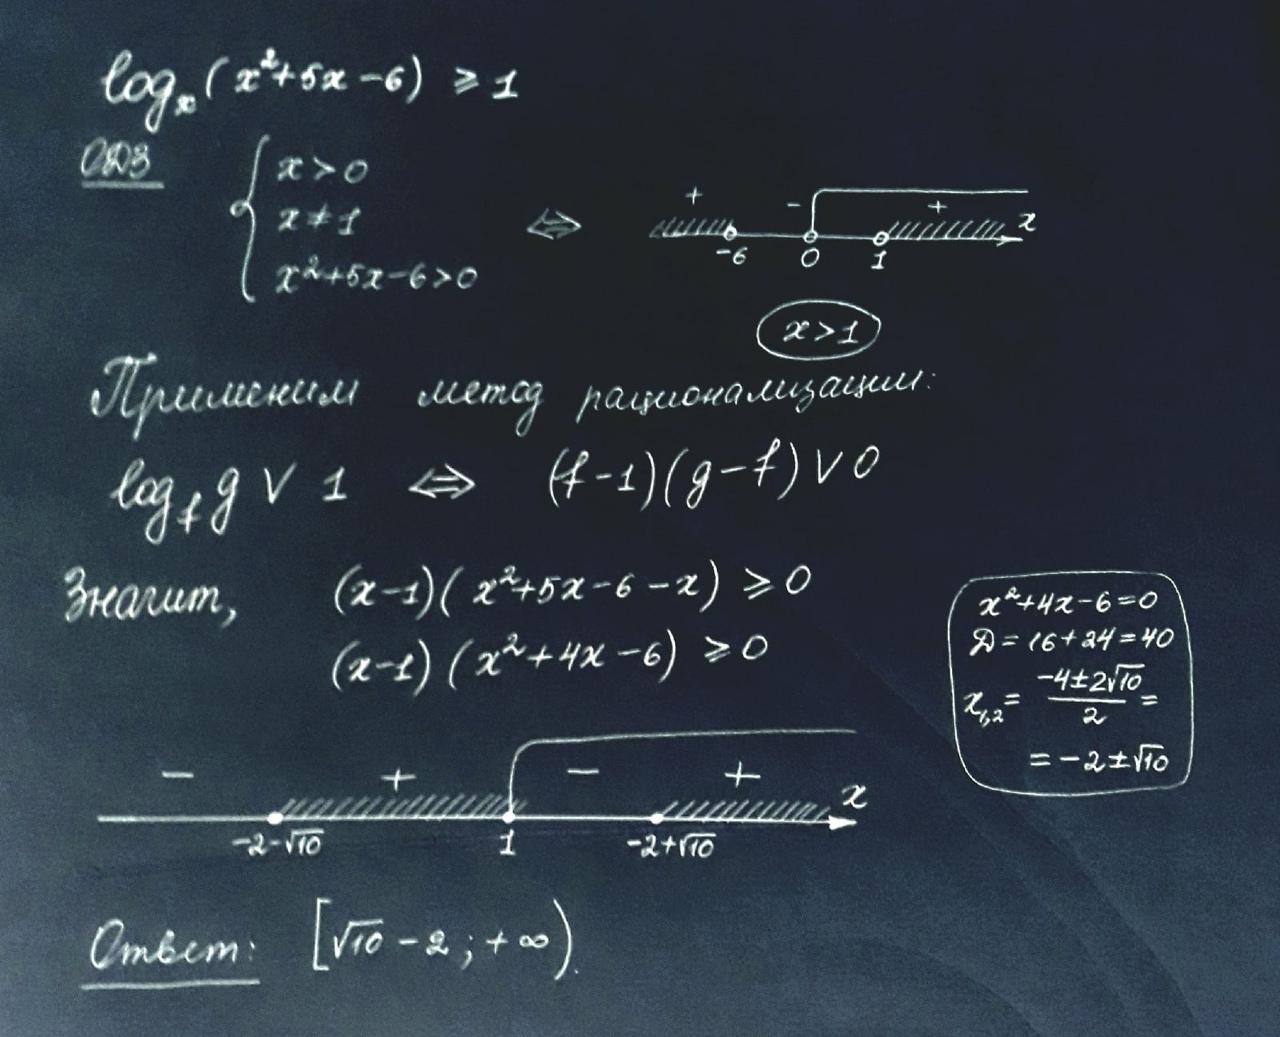 logₓ(x²+5x−6) ⩾ 1
ОДЗ
{ x>0
x≠1
x²+5x−6>0
⇔
+ − + x
−6 0 1
x>1
Применим метод рационализации:
log_f g ∨ 1 ⇔ (f−1)(g−f) ∨ 0
Значит, (x−1)(x²+5x−6−x) ⩾ 0
(x−1)(x²+4x−6) ⩾ 0
x²+4x−6=0
D=16+24=40
x₁,₂= (−4±2√10)/2 =
= −2±√10
− + − + x
−2−√10 1 −2+√10
Ответ: [√10−2; +∞).